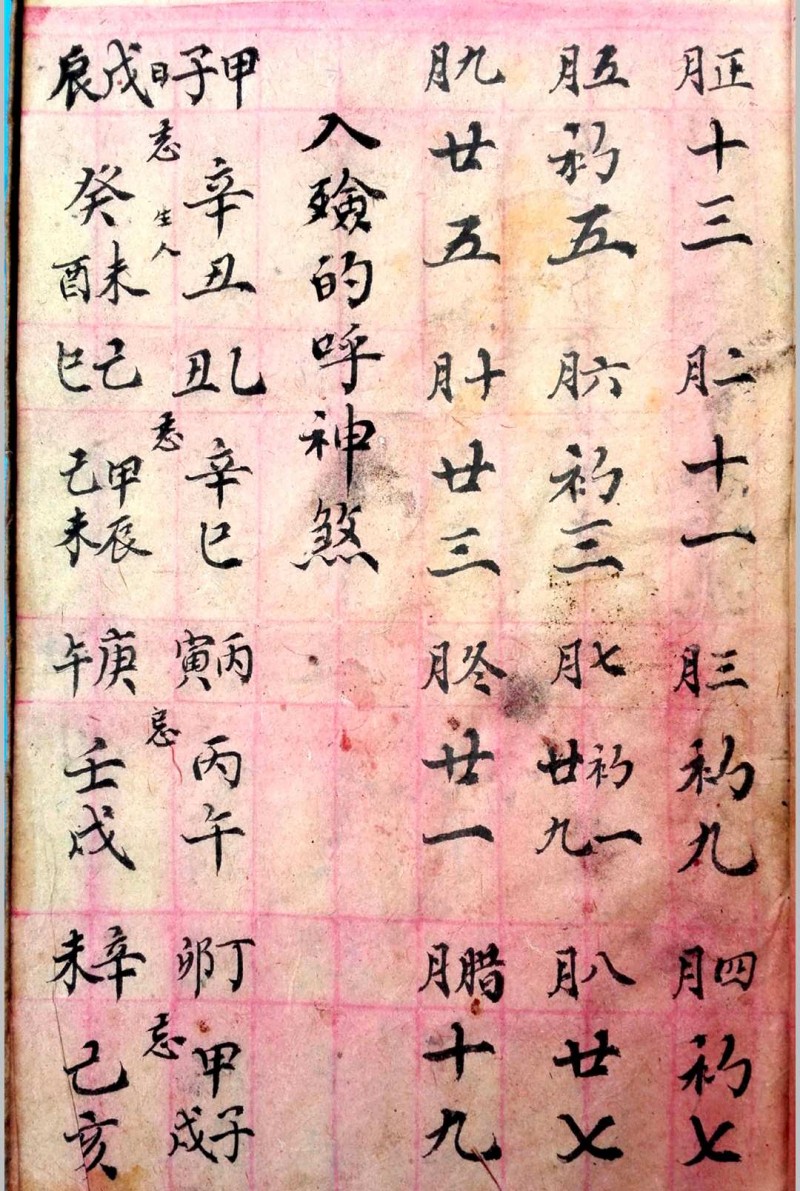 正月 十三 二月 十一 三月 初九 四月 初七
五月 初五 六月 初三 七月 初一 廿九 八月 廿七
九月 廿五 十月 廿三 冬月 廿一 腊月 十九
入殮的呼神煞
甲子日 忌生人 辛丑 乙丑 忌 辛巳 丙寅 忌 丙午 丁卯 忌 甲子戌
戊辰 癸未酉 己巳 甲辰 己未 庚午 壬戌 辛未 己亥